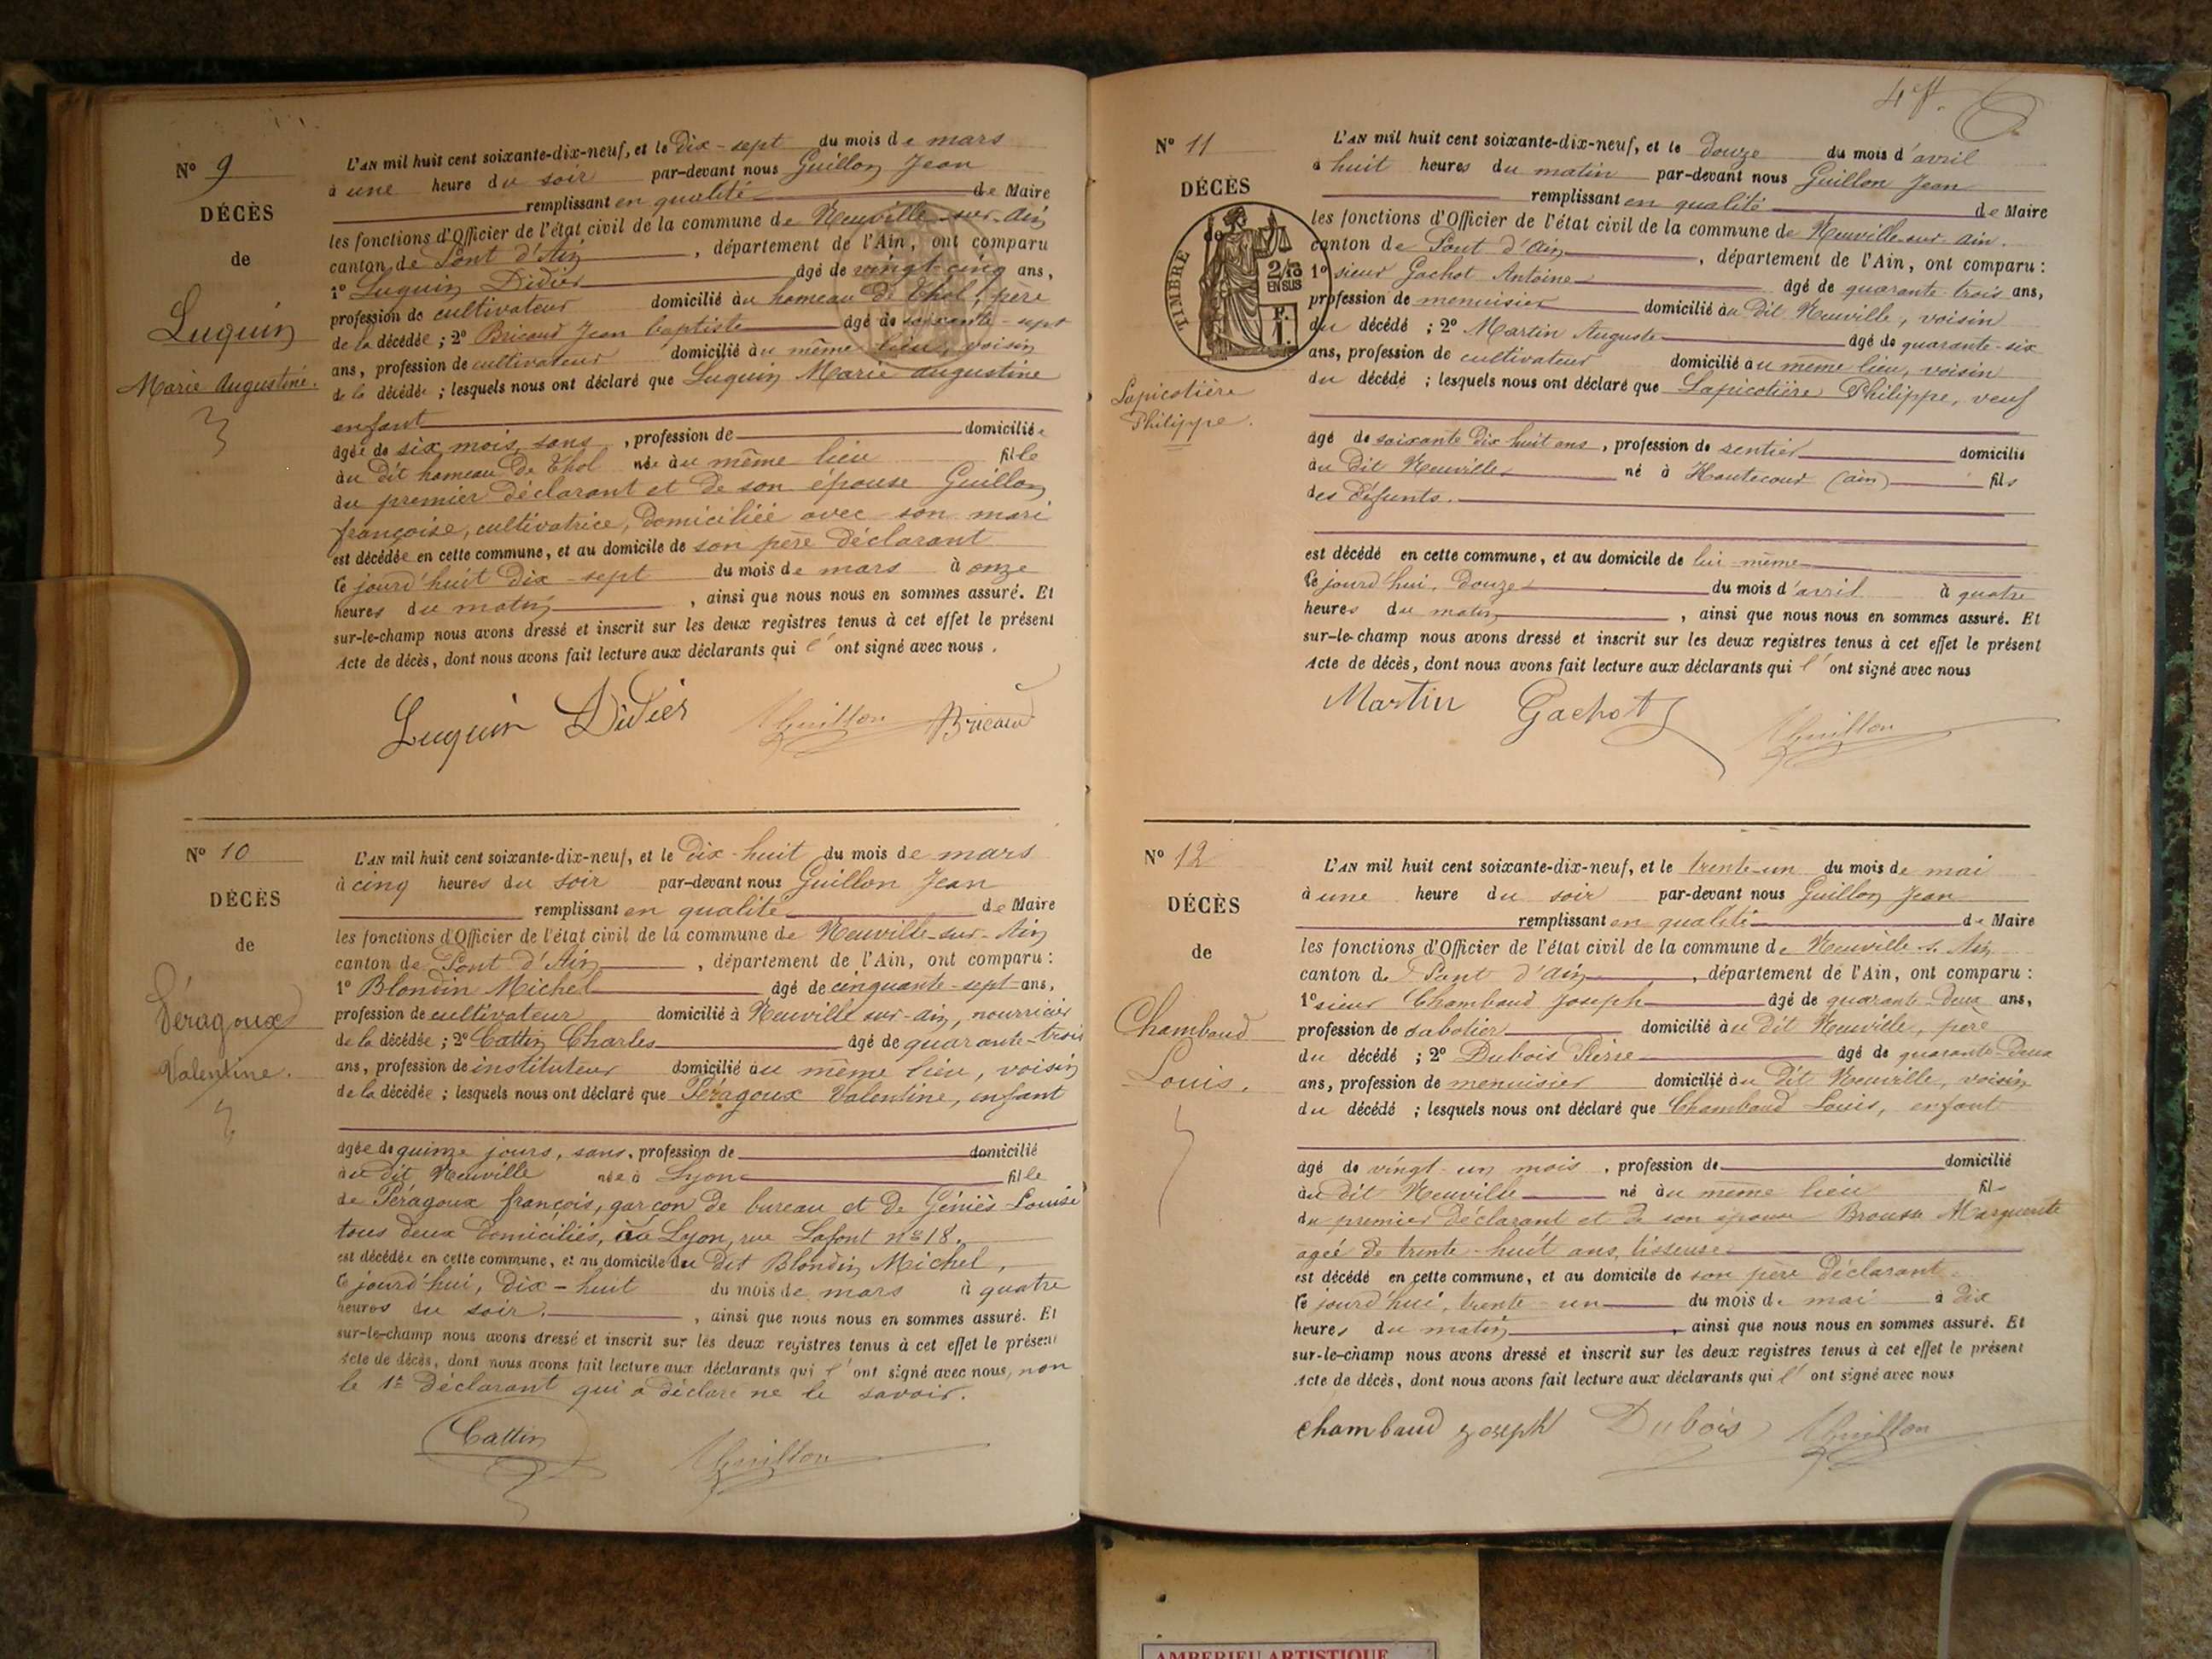 Nº 9
DÉCÈS
de
Luquin
Marie Augustine.
L'AN mil huit cent soixante-dix-neuf, et le dix-sept du mois de mars
à une heure du soir par-devant nous Guillon Jean
remplissant en qualité de Maire
les fonctions d'Officier de l'état civil de la commune de Neuville-sur-Ain
canton de Pont d'Ain, département de l'Ain, ont comparu
1º Luquin Didier âgé de vingt-cinq ans,
profession de cultivateur domicilié au hameau de Thol, père
de la décédée ; 2º Bricaud Jean baptiste âgé de soixante-sept
ans, profession de cultivateur domicilié au même lieu, voisin
de la décédée ; lesquels nous ont déclaré que Luquin Marie augustine
enfant
âgée de six mois, sans, profession de domiciliée
au dit hameau de Thol née au même lieu fille
du premier déclarant et de son épouse Guillon
françoise, cultivatrice, domiciliée avec son mari
est décédée en cette commune, et au domicile de son père déclarant
le jourd'huit dix-sept du mois de mars à onze
heures du matin, ainsi que nous nous en sommes assuré. Et
sur-le-champ nous avons dressé et inscrit sur les deux registres tenus à cet effet le présent
Acte de décès, dont nous avons fait lecture aux déclarants qui l'ont signé avec nous.
Luquin Didier Guillon Bricaud
Nº 10
DÉCÈS
de
Péragoux
Valentine.
L'AN mil huit cent soixante-dix-neuf, et le dix-huit du mois de mars
à cinq heures du soir par-devant nous Guillon Jean
remplissant en qualité de Maire
les fonctions d'Officier de l'état civil de la commune de Neuville-sur-Ain
canton de Pont d'Ain, département de l'Ain, ont comparu :
1º Blondin Michel âgé de cinquante-sept ans,
profession de cultivateur domicilié à Neuville sur-ain, nourricier
de la décédée ; 2º Cattin Charles âgé de quarante-trois
ans, profession de instituteur domicilié au même lieu, voisin
de la décédée ; lesquels nous ont déclaré que Péragoux Valentine, enfant
âgée de quinze jours, sans, profession de domicilié
au dit Neuville née à Lyon fille
de Péragoux françois, garçon de bureau et de Géniès Louise
tous deux domiciliés, à Lyon, rue Lafont nº 18.
est décédée en cette commune, et au domicile du dit Blondin Michel,
le jourd'hui, dix-huit du mois de mars à quatre
heures du soir, ainsi que nous nous en sommes assuré. Et
sur-le-champ nous avons dressé et inscrit sur les deux registres tenus à cet effet le présent
Acte de décès, dont nous avons fait lecture aux déclarants qui l'ont signé avec nous, non
le 1er déclarant qui a déclaré ne le savoir.
Cattin Guillon
4 ft.
Nº 11
DÉCÈS
de
TIMBRE
2/10
EN SUS
F.
1.
Lapicotière
Philippe.
L'AN mil huit cent soixante-dix-neuf, et le douze du mois d'avril
à huit heures du matin par-devant nous Guillon Jean
remplissant en qualité de Maire
les fonctions d'Officier de l'état civil de la commune de Neuville-sur-ain.
canton de Pont d'Ain, département de l'Ain, ont comparu :
1º sieur Gachot Antoine âgé de quarante-trois ans,
profession de menuisier domicilié au dit Neuville, voisin
du décédé ; 2º Martin Auguste âgé de quarante-six
ans, profession de cultivateur domicilié au même lieu, voisin
du décédé ; lesquels nous ont déclaré que Lapicotière Philippe, veuf
âgé de soixante dix huit ans, profession de rentier domicilié
au dit Neuville né à Hautecour (ain) fils
des défunts.
est décédé en cette commune, et au domicile de lui-même
le jourd'hui, douze du mois d'avril à quatre
heures du matin, ainsi que nous nous en sommes assuré. Et
sur-le-champ nous avons dressé et inscrit sur les deux registres tenus à cet effet le présent
Acte de décès, dont nous avons fait lecture aux déclarants qui l'ont signé avec nous
Martin Gachot Guillon
Nº 12
DÉCÈS
de
Chambaud
Louis.
L'AN mil huit cent soixante-dix-neuf, et le trente-un du mois de mai
à une heure du soir par-devant nous Guillon Jean
remplissant en qualité de Maire
les fonctions d'Officier de l'état civil de la commune de Neuville s. Ain
canton de Pont d'ain, département de l'Ain, ont comparu :
1º sieur Chambaud Joseph âgé de quarante-deux ans,
profession de sabotier domicilié au dit Neuville, père
du décédé ; 2º Dubois Pierre âgé de quarante-deux
ans, profession de menuisier domicilié au dit Neuville, voisin
du décédé ; lesquels nous ont déclaré que Chambaud Louis, enfant
âgé de vingt-un mois, profession de domicilié
au dit Neuville né au même lieu fils
du premier déclarant et de son épouse Marguerite
ageé de trente-huit ans, tisseuse
est décédé en cette commune, et au domicile de son père déclarant
le jourd'hui, trente-un du mois de mai à dix
heures du matin, ainsi que nous nous en sommes assuré. Et
sur-le-champ nous avons dressé et inscrit sur les deux registres tenus à cet effet le présent
Acte de décès, dont nous avons fait lecture aux déclarants qui l'ont signé avec nous
chambaud joseph Dubois Guillon
AMBERIEU ARTISTIQUE